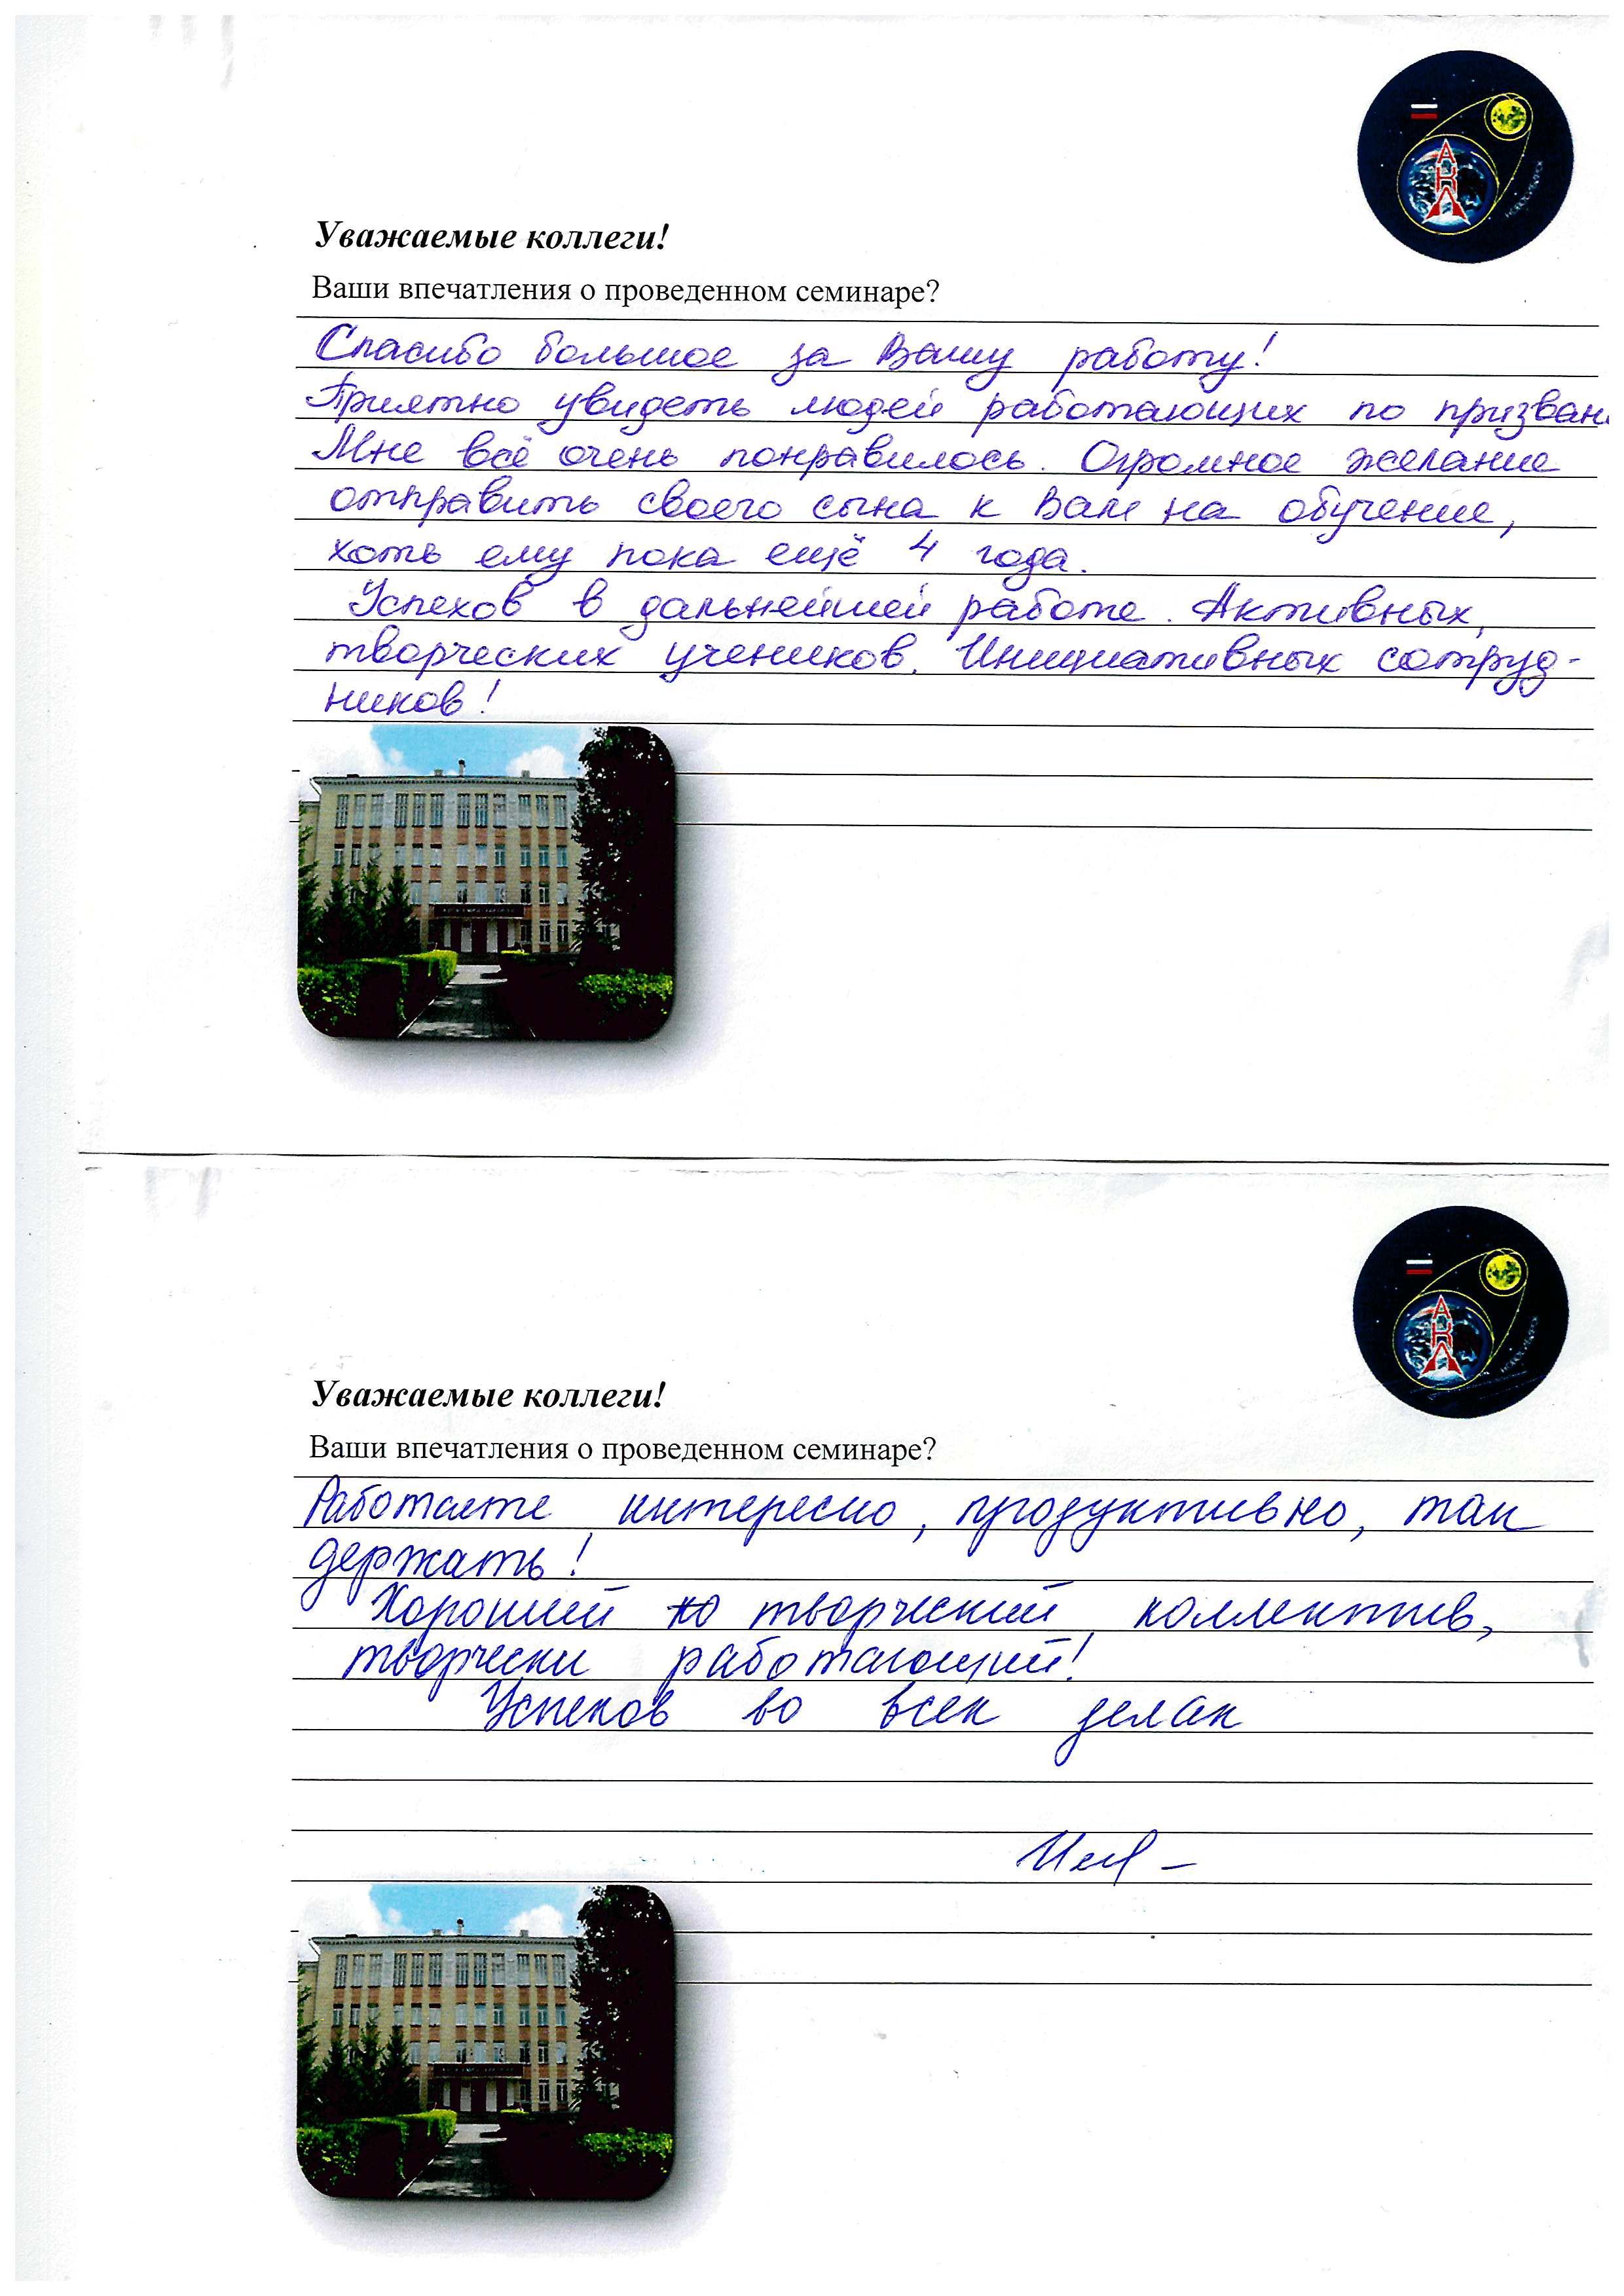 АКЛ
Уважаемые коллеги!
Ваши впечатления о проведенном семинаре?
Спасибо большое за Вашу работу!
Приятно увидеть людей работающих по призван
Мне всё очень понравилось. Огромное желание
отправить своего сына к Вам на обучение,
хоть ему пока ещё 4 года.
Успехов в дальнейшей работе. Активных,
творческих учеников. Инициативных сотруд-
ников!
АКЛ
Уважаемые коллеги!
Ваши впечатления о проведенном семинаре?
Работаете интересно, продуктивно, так
держать!
Хороший творческий коллектив,
творчески работающий!
Успехов во всех делах